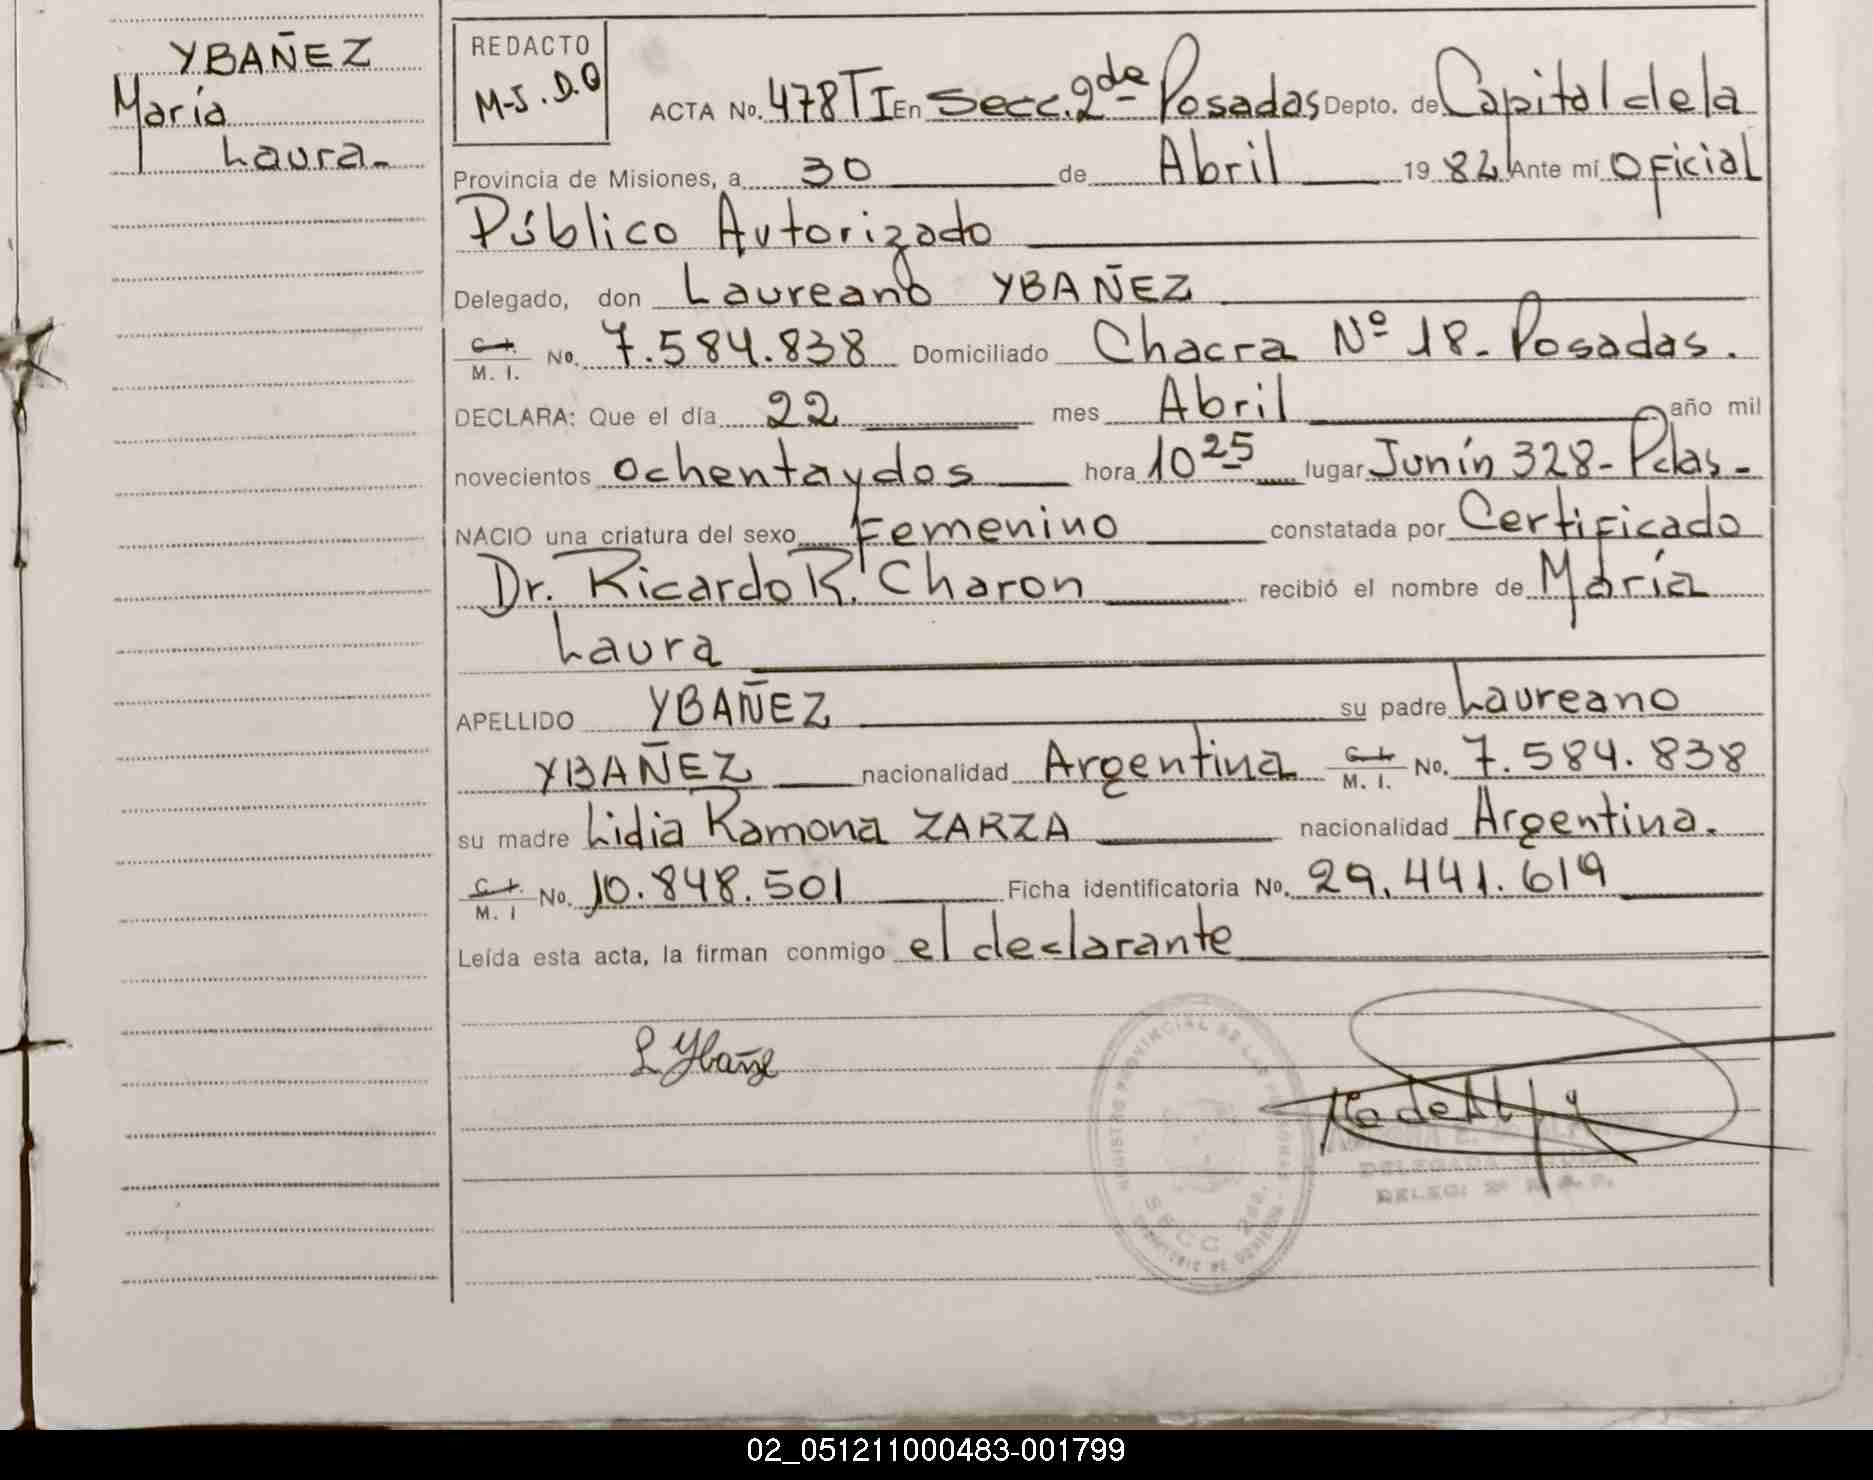 YBAÑEZ
María
Laura-
REDACTO
M-J.D.Q
ACTA No. 478 TI En Secc. 2da Posadas Depto. de Capital de la
Provincia de Misiones, a 30 de Abril 1982 Ante mí Oficial
Público Autorizado
Delegado, don Laureano YBAÑEZ
C.I. / M. I. No. 7.584.838 Domiciliado Chacra Nº 18- Posadas.
DECLARA: Que el día 22 mes Abril año mil
novecientos ochenta y dos hora 10 25 lugar Junín 328- Pdas-
NACIO una criatura del sexo Femenino constatada por Certificado
Dr. Ricardo R. Charon recibió el nombre de María
Laura
APELLIDO YBAÑEZ su padre Laureano
YBAÑEZ nacionalidad Argentina C.I. / M. I. No. 7.584.838
su madre Lidia Ramona ZARZA nacionalidad Argentina.
C.I. / M. I No. 10.848.501 Ficha identificatoria No. 29.441.619
Leída esta acta, la firman conmigo el declarante
L Ybañez
SECC 2da.
DELEGADA
DELEG: 2ª
02_051211000483-001799